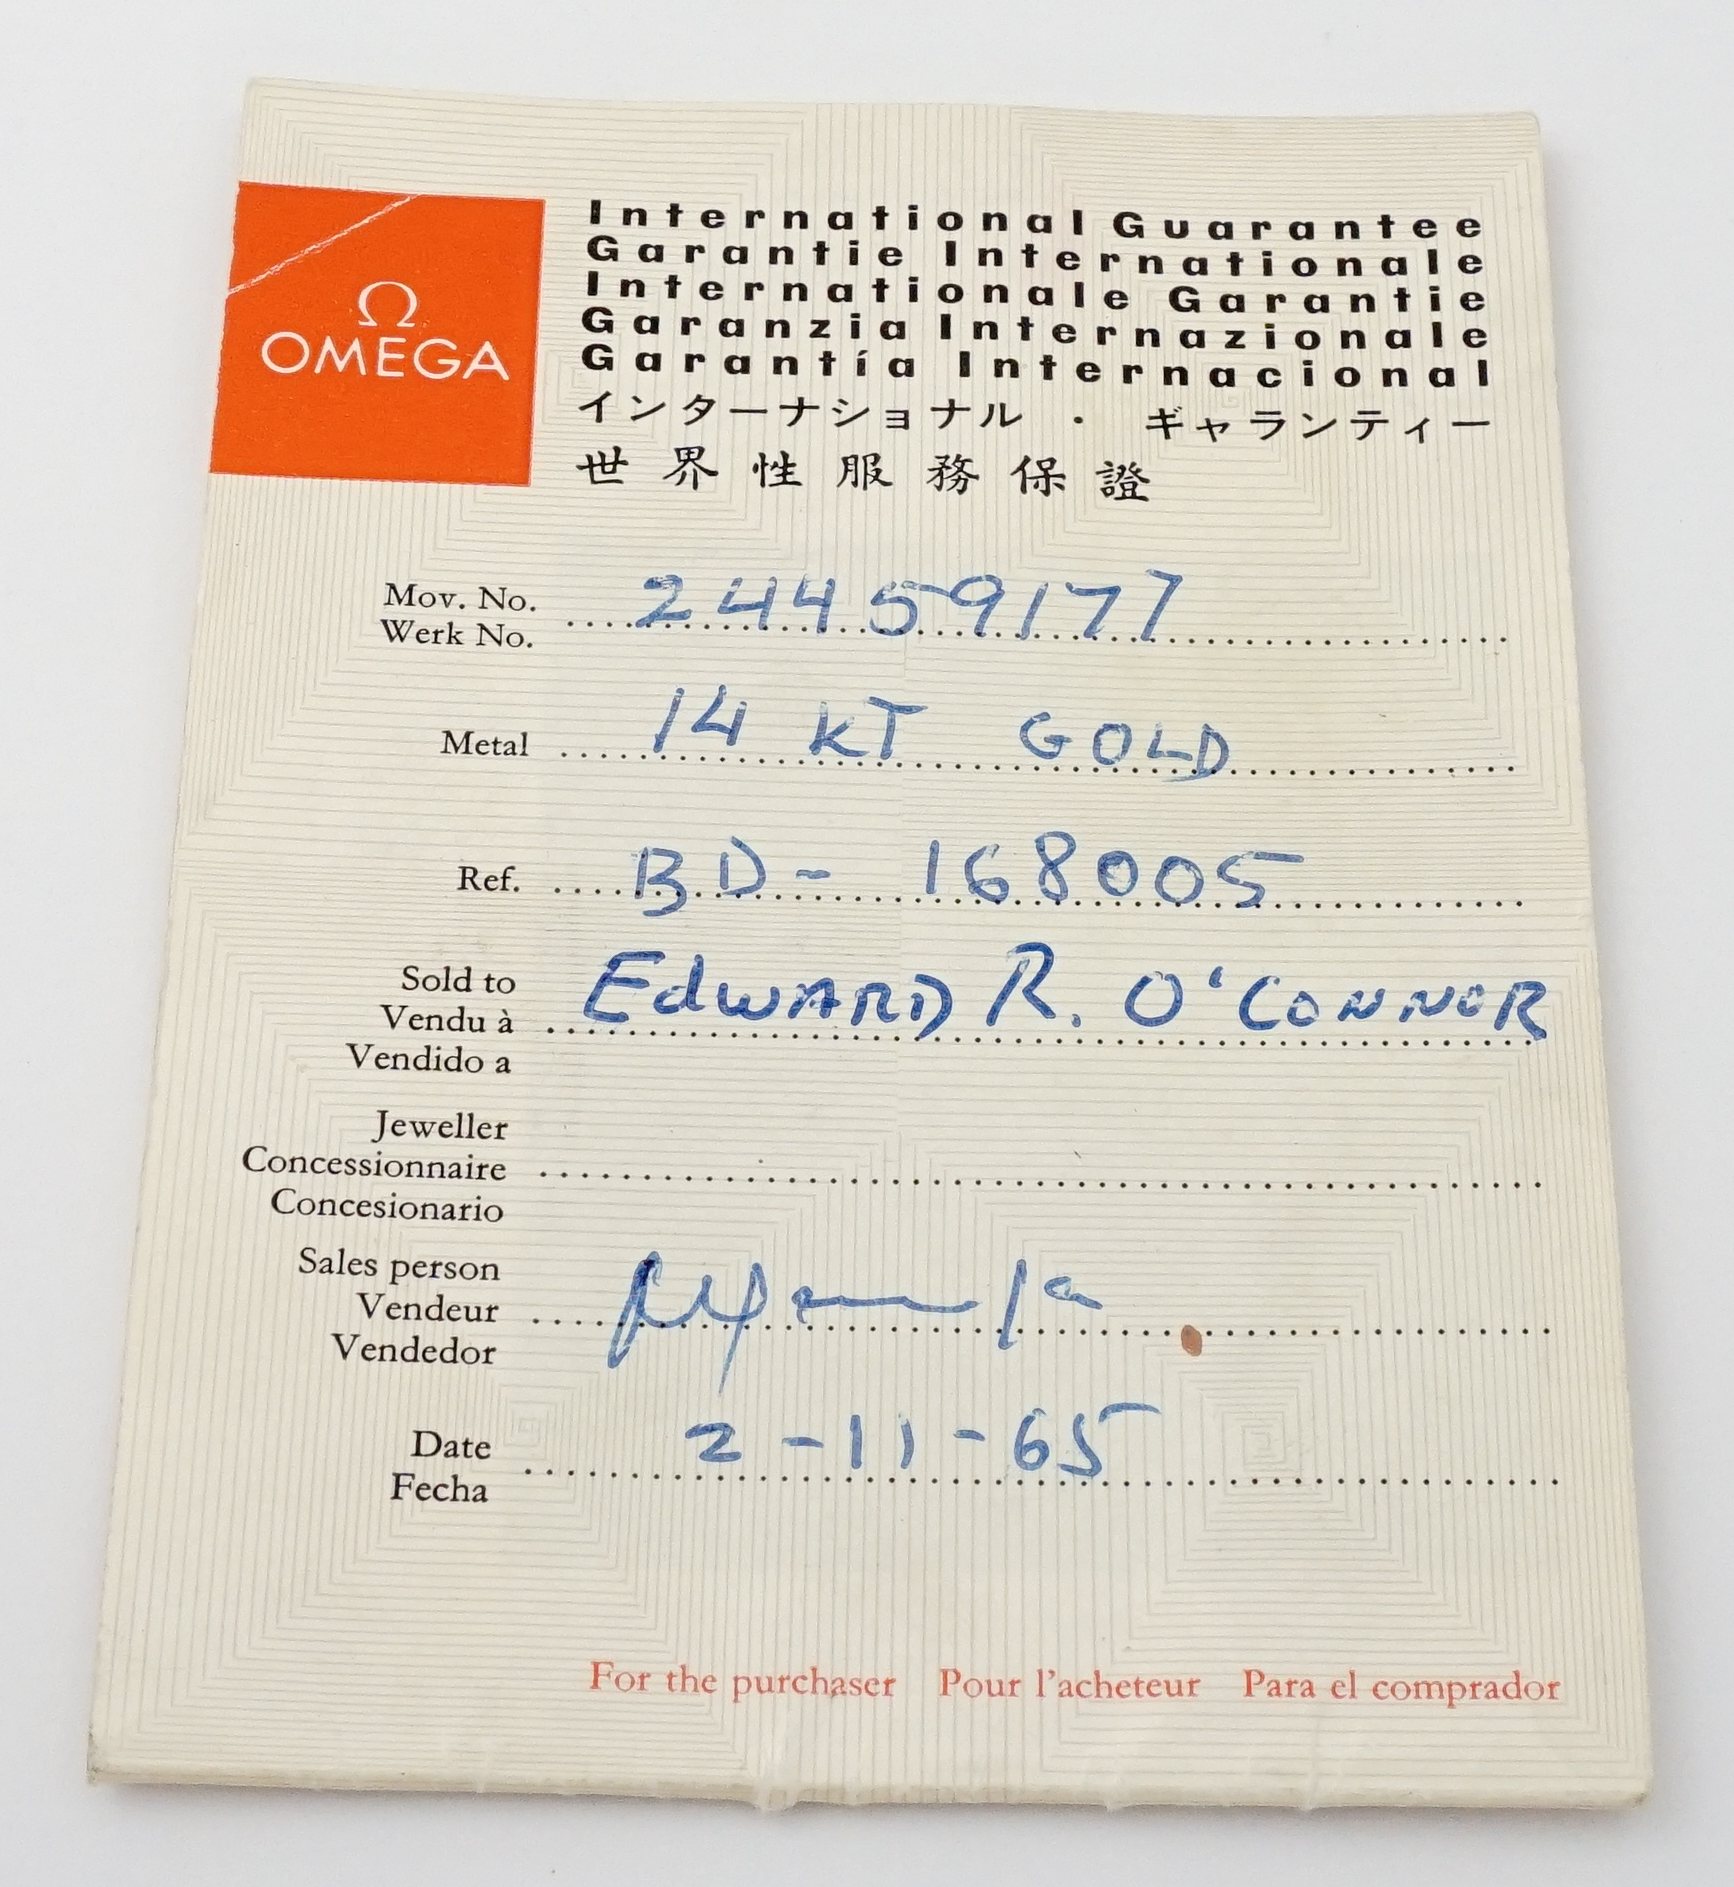 Ω
OMEGA
International Guarantee
Garantie Internationale
Internationale Garantie
Garanzia Internazionale
Garantía Internacional
インターナショナル ・ ギャランティー
世界性服務保證
Mov. No. 24459177
Werk No.
Metal 14 KT GOLD
Ref. BD- 168005
Sold to
Vendu à EdWARD R. O'CONNOR
Vendido a
Jeweller
Concessionnaire
Concesionario
Sales person
Vendeur
Vendedor
Date 2-11-65
Fecha
For the purchaser Pour l'acheteur Para el comprador